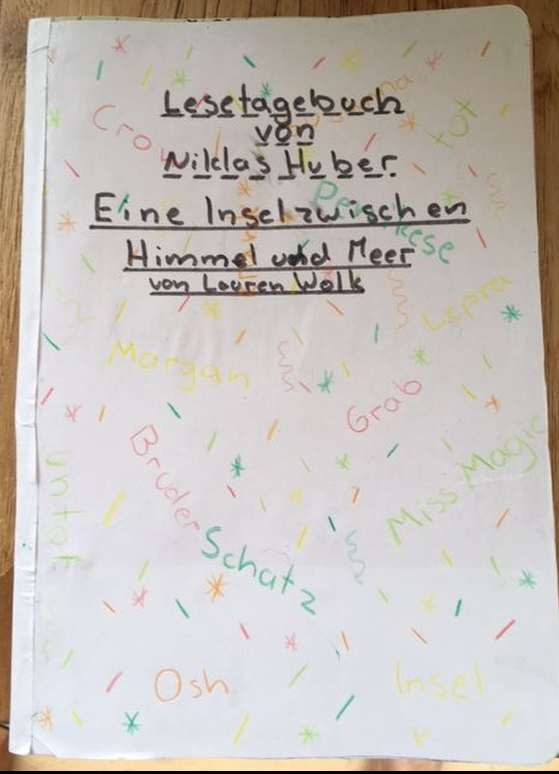 Lesetagebuch
von
Niklas Huber
Eine Insel zwischen
Himmel und Meer
von Lauren Wolk
Crow
tot
Penikese
Lepra
Morgan
Grab
Bruder
Miss
Schatz
Osh
Insel